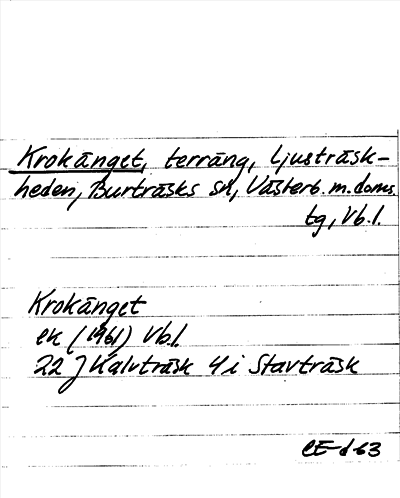 Krokänget, terräng, Ljusträsk-
heden, Burträsks sn, Västerb. m. doms.
tg, Vb. l.
Krokänget
ek (1961) Vb.l.
22 J Kalvträsk 4 i Stavträsk
CE-d 63